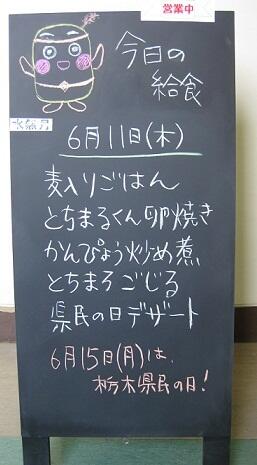 営業中
今日の
給食
水無月
6月11日(木)
麦入りごはん
とちまるくん卵焼き
かんぴょう炒め煮
とちまるごじる
県民の日デザート
6月15日(月)は、
栃木県民の日!